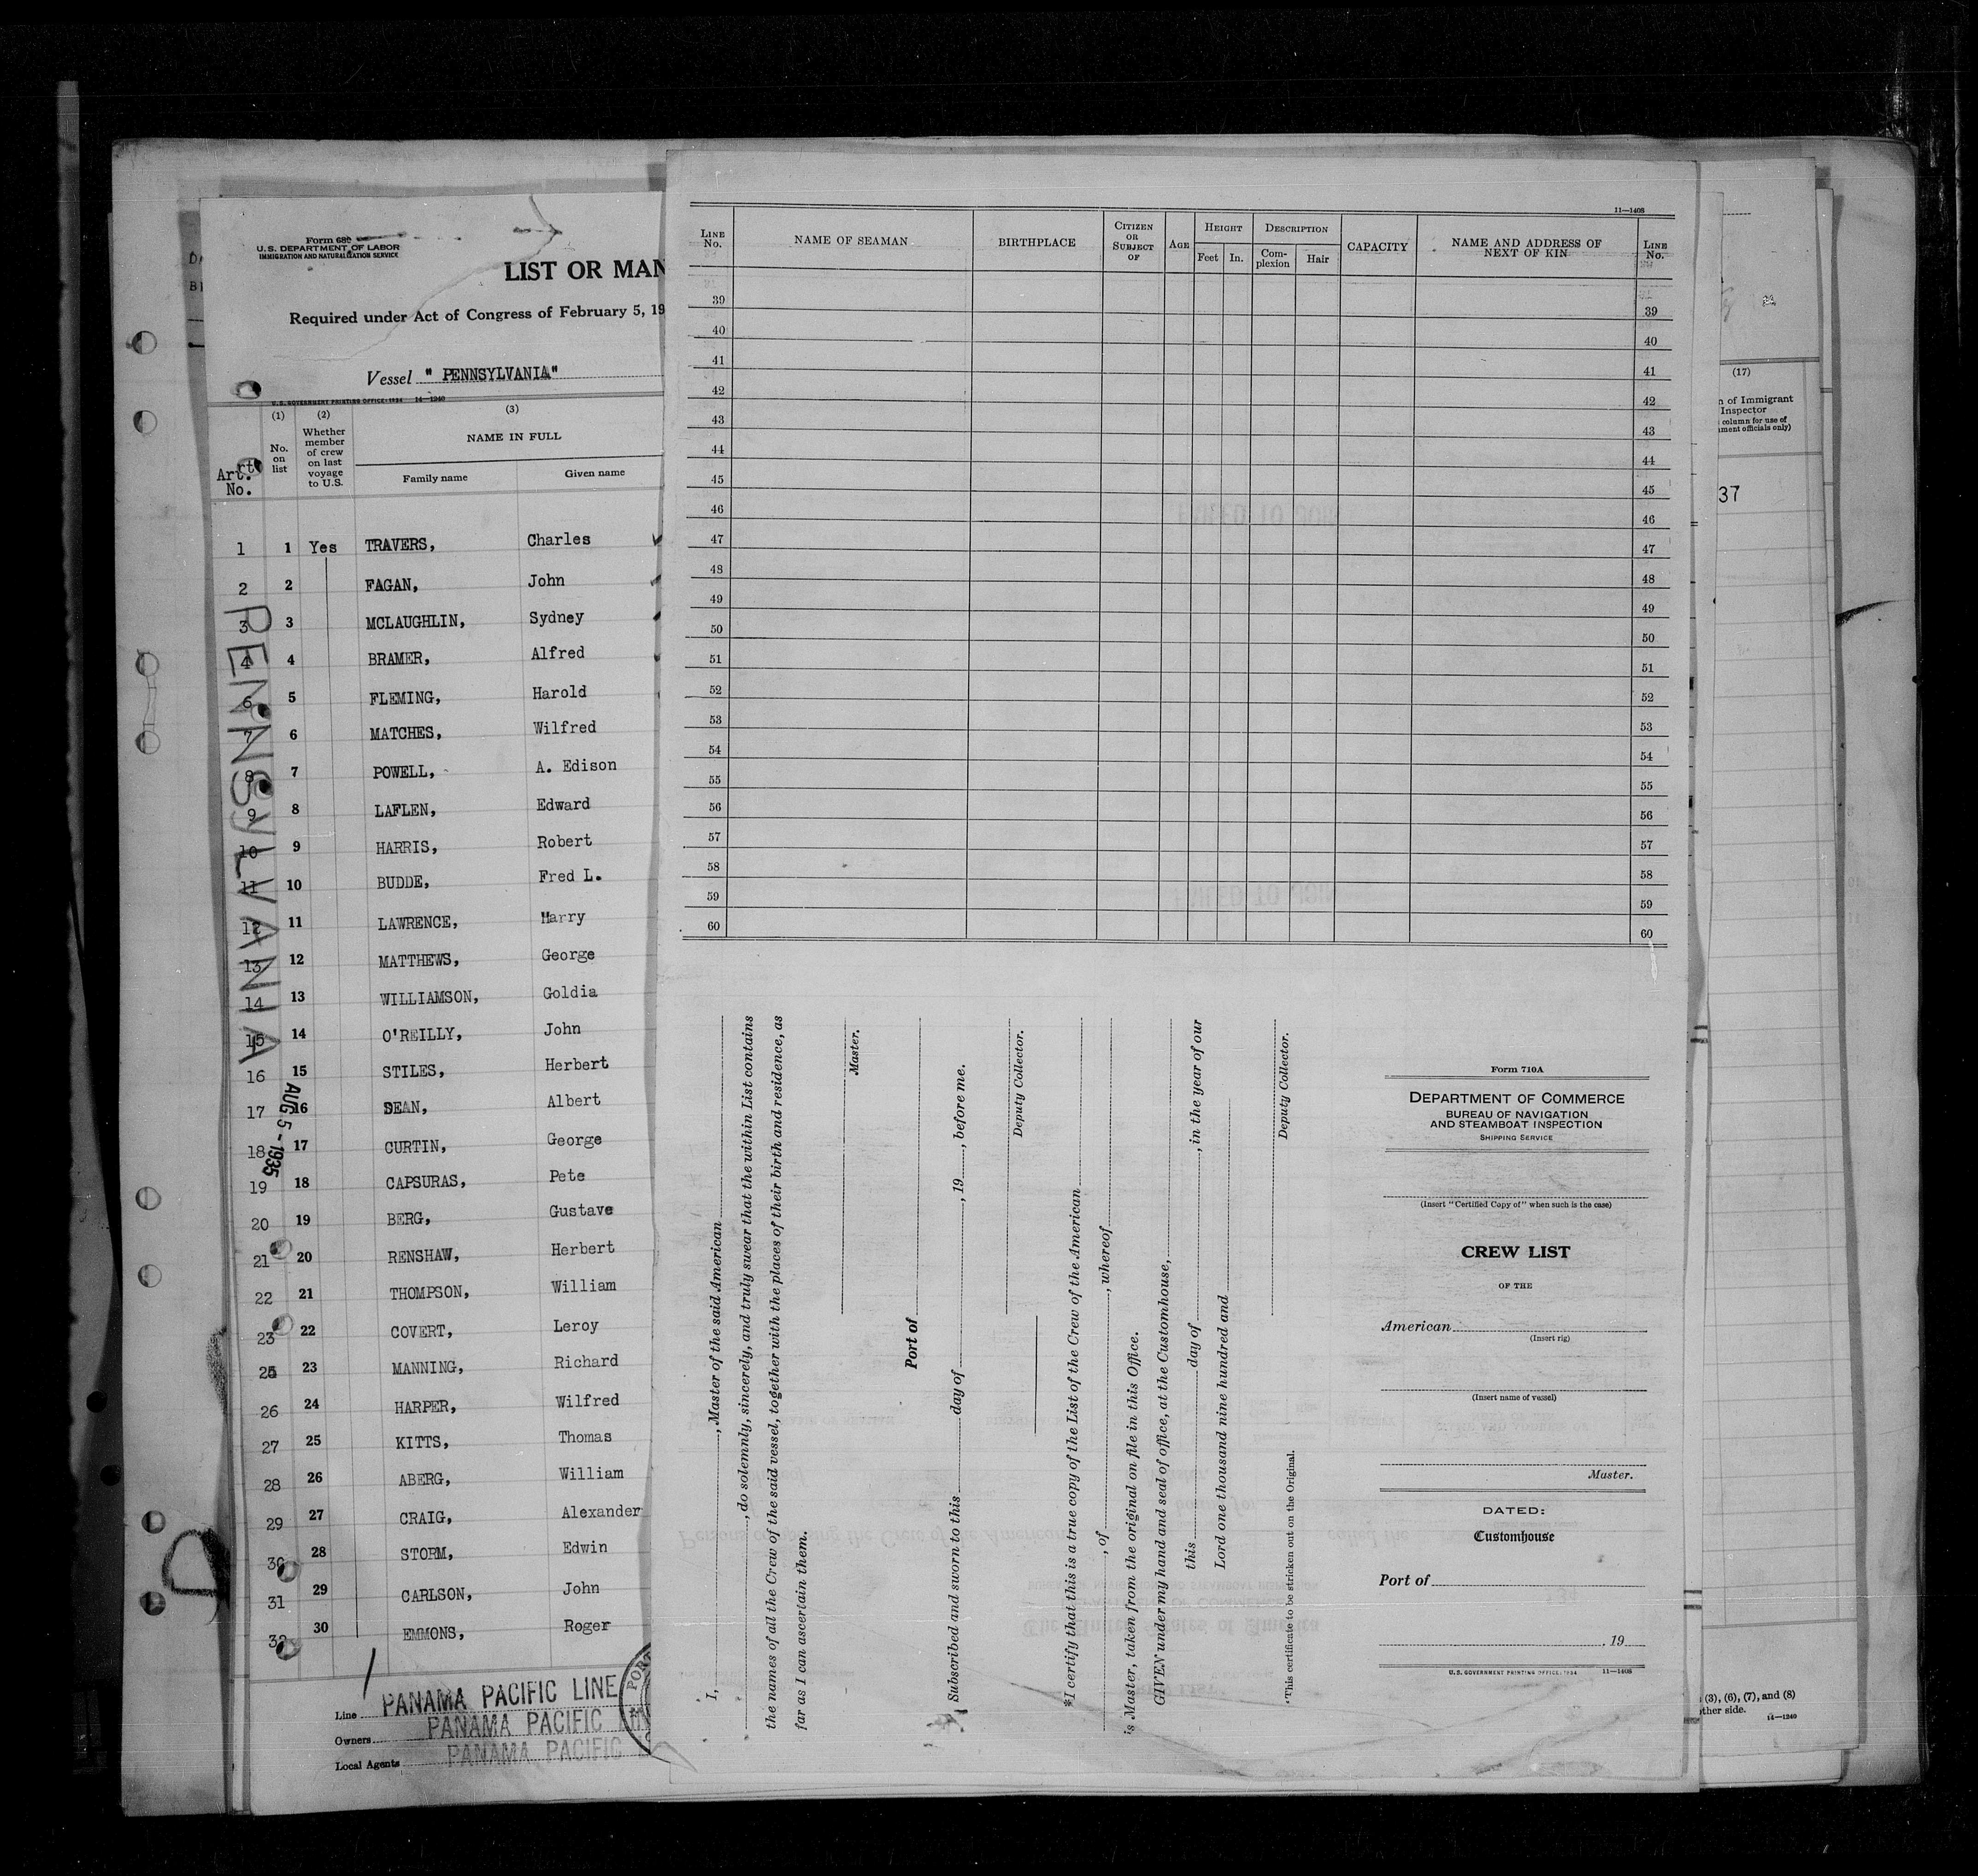 Form 680
U.S. DEPARTMENT OF LABOR
IMMIGRATION AND NATURALIZATION SERVICE
LIST OR MAN
Required under Act of Congress of February 5, 19
Vessel " PENNSYLVANIA"
U.S. GOVERNMENT PRINTING OFFICE: 1934 14—1240
(1) (2) (3)
Art. No.
No. on list
Whether member of crew on last voyage to U.S.
NAME IN FULL
Family name Given name
1 1 Yes TRAVERS, Charles
2 2 FAGAN, John
3 3 MCLAUGHLIN, Sydney
4 4 BRAMER, Alfred
6 5 FLEMING, Harold
7 6 MATCHES, Wilfred
8 7 POWELL, A. Edison
9 8 LAFLEN, Edward
10 9 HARRIS, Robert
11 10 BUDDE, Fred L.
12 11 LAWRENCE, Harry
13 12 MATTHEWS, George
14 13 WILLIAMSON, Goldia
15 14 O'REILLY, John
16 15 STILES, Herbert
17 16 DEAN, Albert
18 17 CURTIN, George
19 18 CAPSURAS, Pete
20 19 BERG, Gustave
21 20 RENSHAW, Herbert
22 21 THOMPSON, William
23 22 COVERT, Leroy
25 23 MANNING, Richard
26 24 HARPER, Wilfred
27 25 KITTS, Thomas
28 26 ABERG, William
29 27 CRAIG, Alexander
30 28 STORM, Edwin
31 29 CARLSON, John
32 30 EMMONS, Roger
PENNSYLVANIA
AUG 5 - 1935
Line PANAMA PACIFIC LINE
Owners PANAMA PACIFIC LIN
Local Agents PANAMA PACIFIC
PORT
11—1408
LINE No.
NAME OF SEAMAN
BIRTHPLACE
CITIZEN OR SUBJECT OF
AGE
HEIGHT
Feet In.
DESCRIPTION
Complexion Hair
CAPACITY
NAME AND ADDRESS OF NEXT OF KIN
LINE No.
39 39
40 40
41 41
42 42
43 43
44 44
45 45
46 46
47 47
48 48
49 49
50 50
51 51
52 52
53 53
54 54
55 55
56 56
57 57
58 58
59 59
60 60
FAILED TO JOIN
FAILED TO JOIN
I, , Master of the said American
, do solemnly, sincerely, and truly swear that the within List contains
the names of all the Crew of the said vessel, together with the places of their birth and residence, as
far as I can ascertain them.
Master.
Port of
Subscribed and sworn to this day of , 19 , before me.
Deputy Collector.
*I certify that this is a true copy of the List of the Crew of the American
, of , whereof
is Master, taken from the original on file in this Office.
GIVEN under my hand and seal of office, at the Customhouse,
this day of , in the year of our
Lord one thousand nine hundred and
Deputy Collector.
*This certificate to be stricken out on the Original.
Form 710A
DEPARTMENT OF COMMERCE
BUREAU OF NAVIGATION
AND STEAMBOAT INSPECTION
SHIPPING SERVICE
(Insert "Certified Copy of" when such is the case)
CREW LIST
OF THE
American
(Insert rig)
(Insert name of vessel)
Master.
DATED:
Customhouse
Port of
, 19
U.S. GOVERNMENT PRINTING OFFICE: 1934 11—1408
(17)
n of Immigrant
Inspector
column for use of
ment officials only)
37
(3), (6), (7), and (8)
ther side.
14—1240